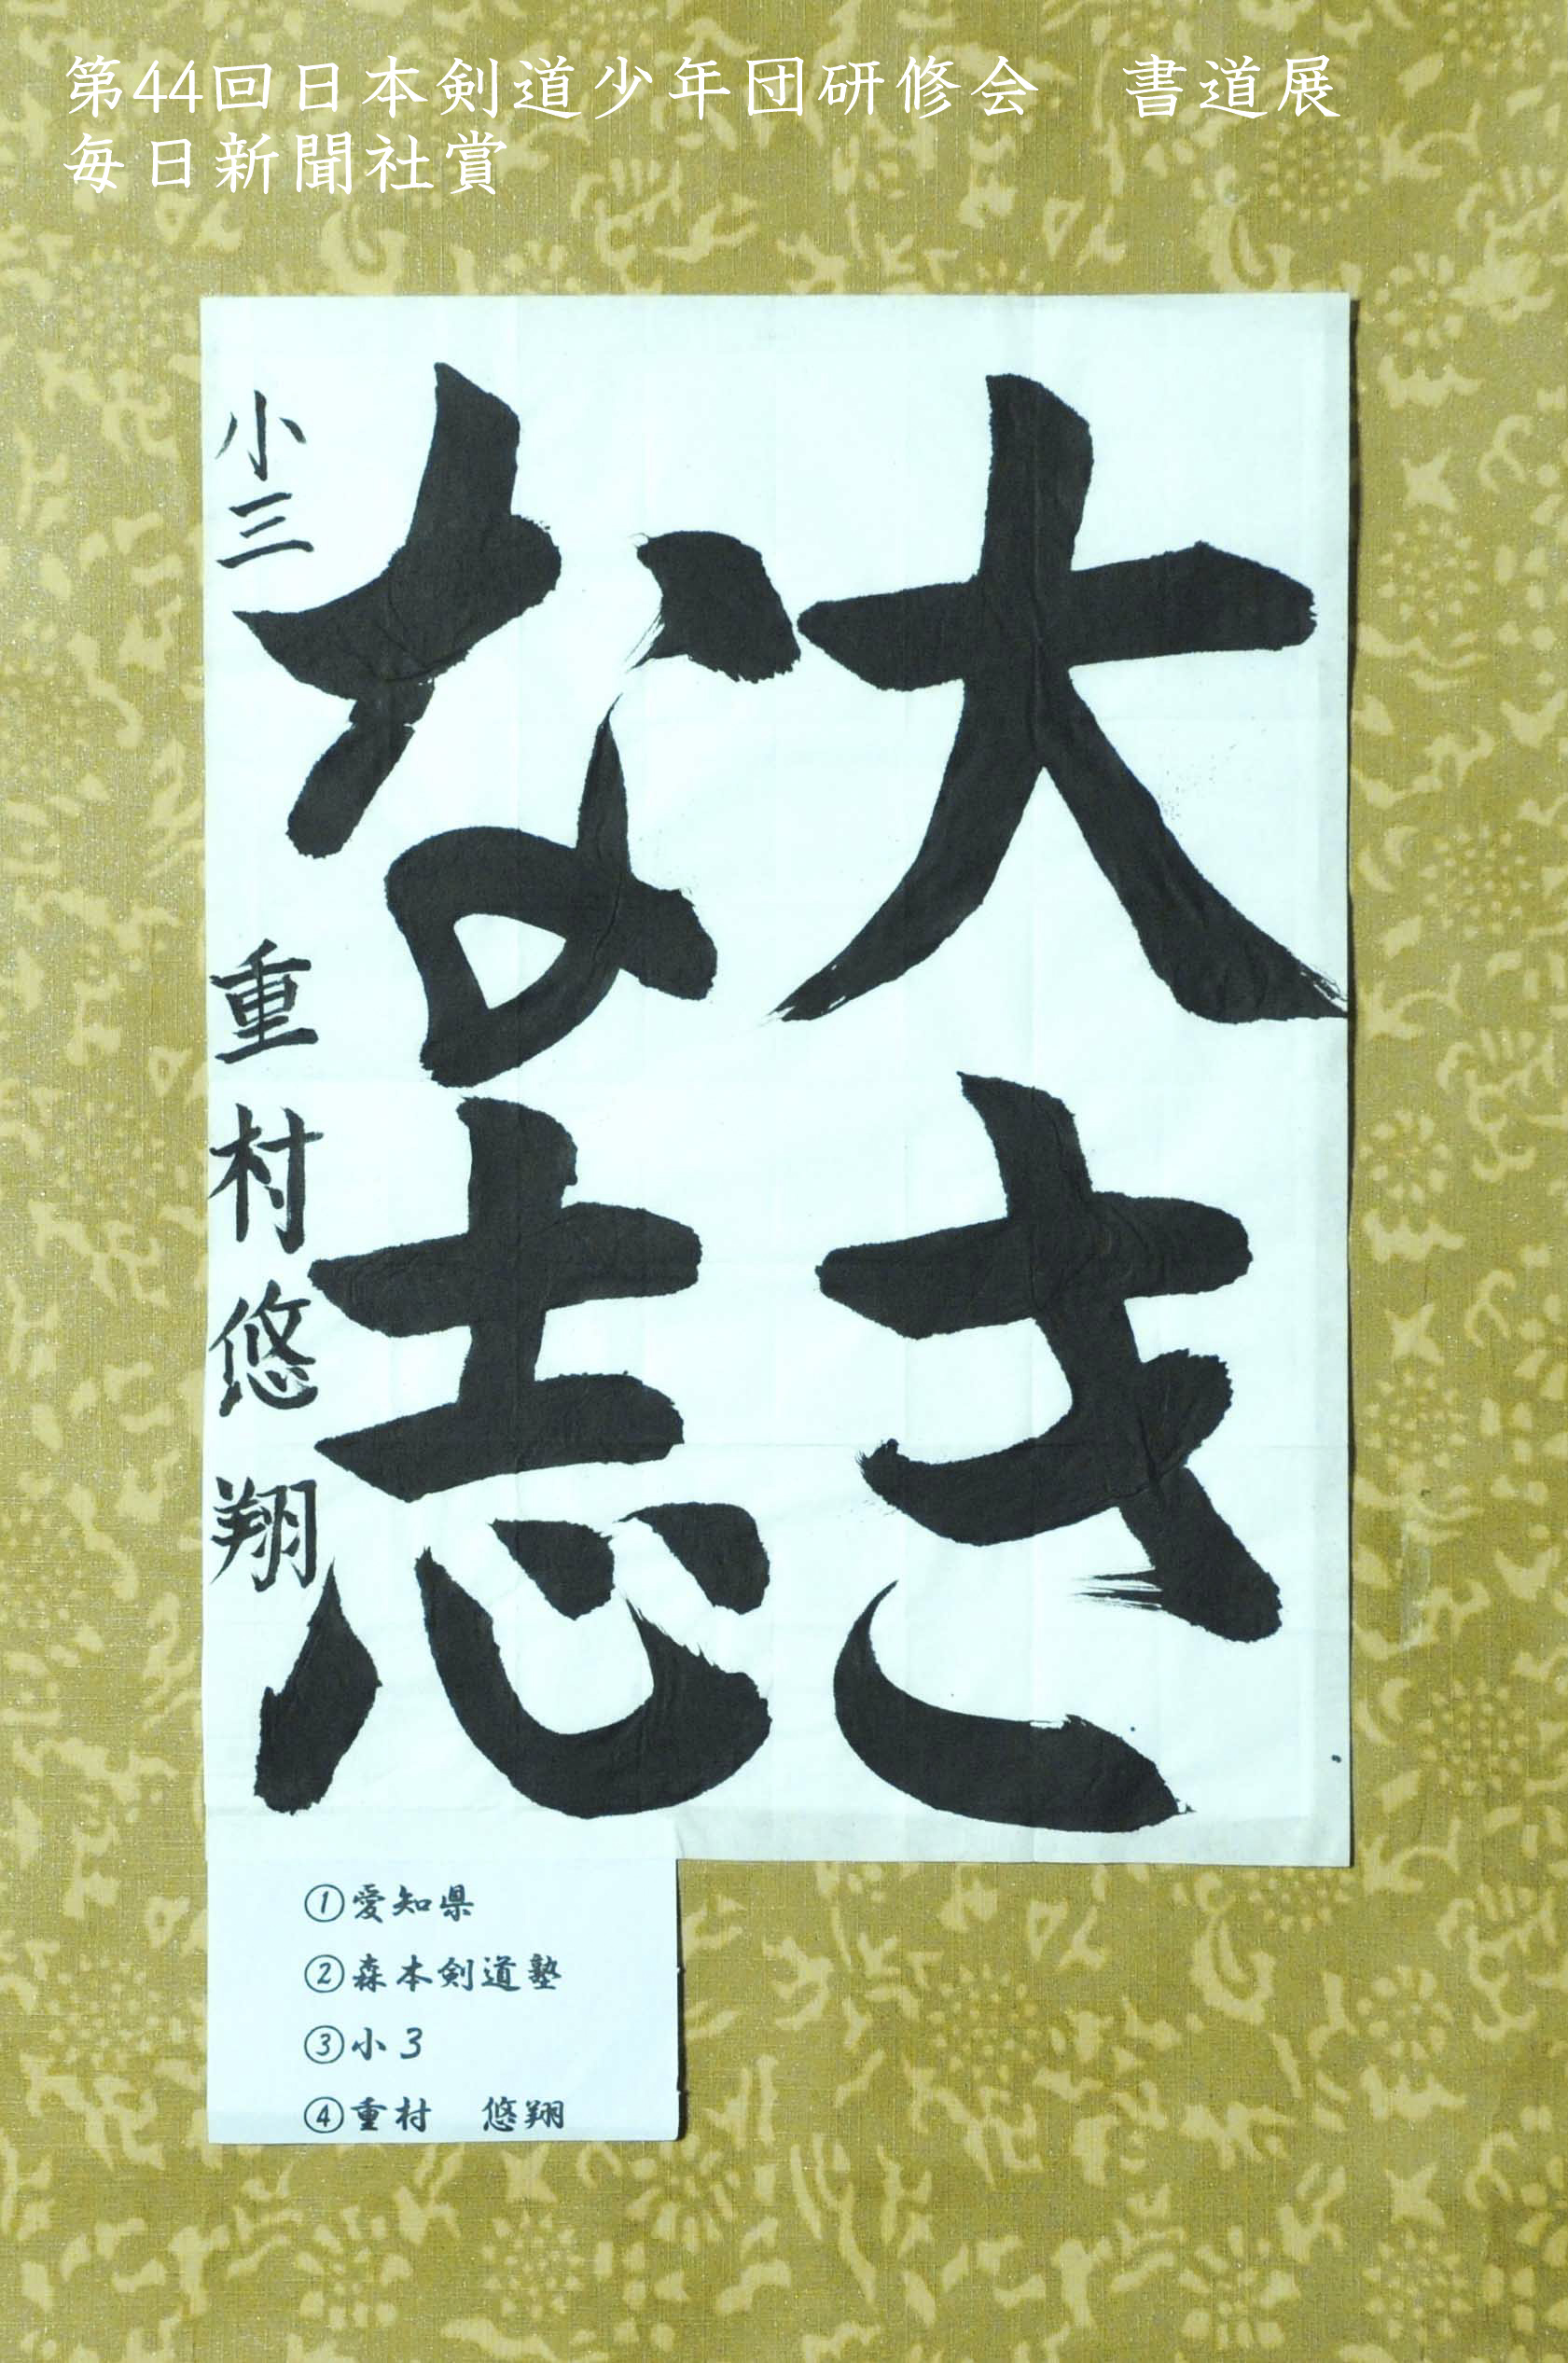 第44回日本剣道少年団研修会　書道展
毎日新聞社賞
大き
な志
小三　重村悠翔
①愛知県
②森本剣道塾
③小３
④重村　悠翔